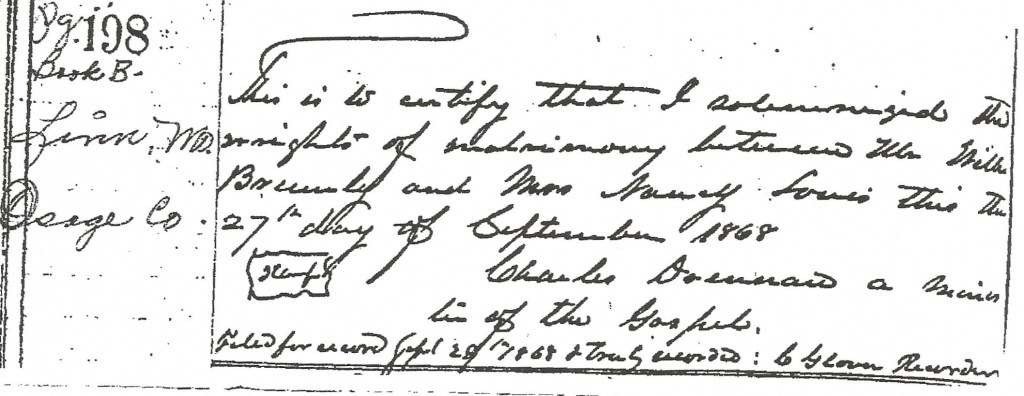 Pg. 198
Book B.
Linn, Mo.
Osage Co.
This is to certify that I solemnized the
wrights of matrimony between Mr Willi
Brumly and Mrs Nancy Louis this the
27th day of September 1868
Stamp
Charles Drennard a minis
ter of the Gospel.
Filed for record Sept 28th 1868 & truly recorded: C Glover Recorder